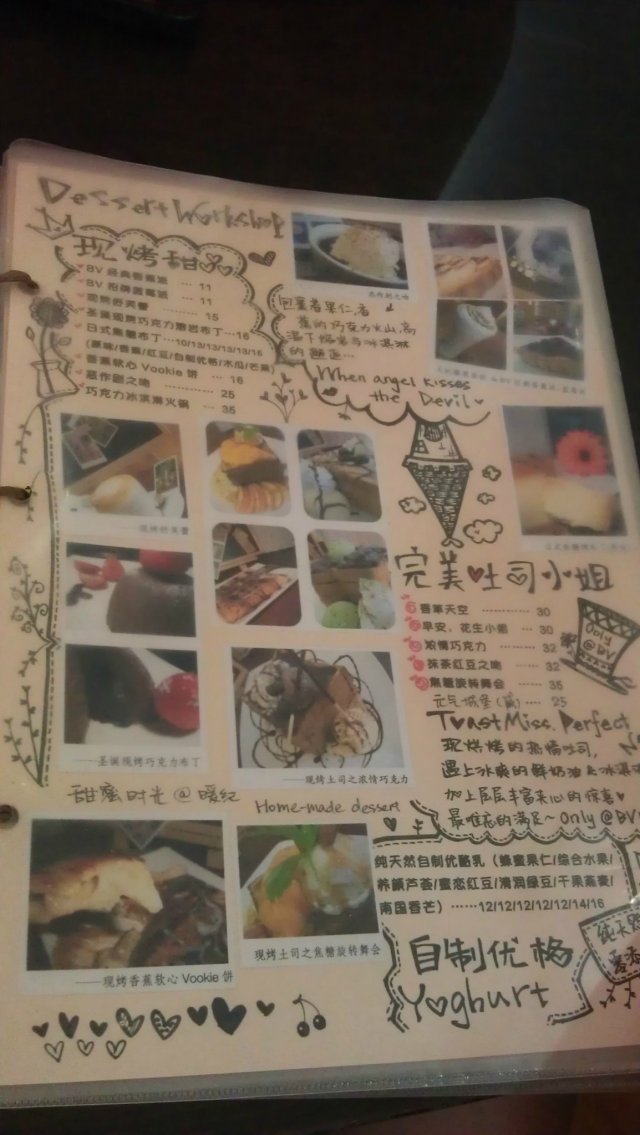 Dessert
现烤甜
BV 经典香蕉派 … 11
BV 招牌蓝莓派 … 11
现烤舒芙蕾 ……… 15
圣诞现烤巧克力磨岩布丁…16
日式焦糖布丁…10/13/13/13/13/16
(原味/香蕉/红豆/自制优格/木瓜/芒果)
香蕉软心 Vookie 饼 … 16
恶作剧之吻 …… 25
巧克力冰淇淋火锅 … 35
恶作剧之吻
When angel kisses
the Devil
——现烤舒芙蕾
——圣诞现烤巧克力布丁
——现烤土司之浓情巧克力
完美吐司小姐
香草天空 ………… 30
早安，花生小姐 … 30
浓情巧克力 ……… 32
抹茶红豆之吻 …… 32
焦糖旋转舞会 …… 35
元气城堡(篇)…… 25
Only
@BV
Toast Miss. Perfect
现烘烤的热情吐司,
遇上冰爽的鲜奶油&冰淇淋
加上层层丰富夹心的惊喜
最难忘的满足~Only@BV
甜蜜时光@暖纪
Home-made dessert
——现烤香蕉软心 Vookie 饼
现烤土司之焦糖旋转舞会
纯天然自制优酪乳（蜂蜜果仁/综合水果/
养颜芦荟/蜜恋红豆/清润绿豆/干果燕麦/
南国香芒）……12/12/12/12/12/14/16
自制优格
Yoghurt